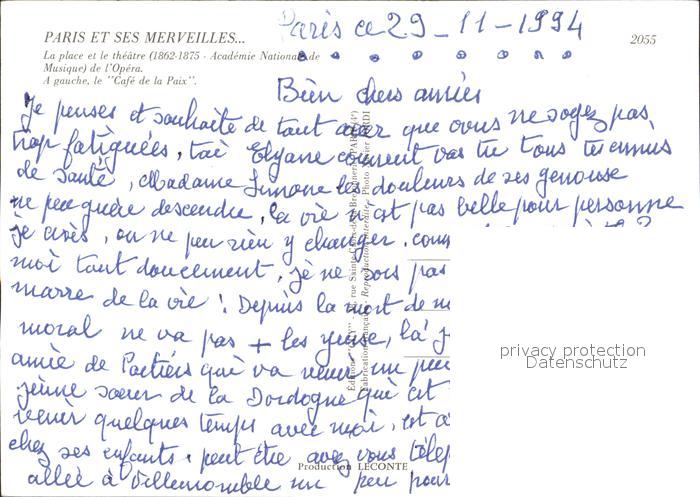 PARIS ET SES MERVEILLES...
La place et le théâtre (1862-1875 - Académie Nationale de
Musique) de l'Opéra.
A gauche, le "Café de la Paix".
2055
Paris ce 29-11-1994
Bien chers amies
Je penses et souhaite de tout cœur que vous ne soyez pas
trop fatiguées, toi Elyane comment vas tu tous tu ennuis
de santé, Madame Simone les douleurs de ses genouse
ne peu guère descendre, la vie n'est pas belle pour personne
je crois, on ne peu rien y changer,
moi tout doucement, je ne pas
marre de la vie! Depuis la mort de
moral ne va pas + les yeuse, la
amie de Poctiers què va venir un peu
jeune sœur de la Dordogne què est
venir quelques temps avec moi, est
chez ses enfants. peut être avez vous
allée à Villemomble un peu pour
Production LECONTE
privacy protection
Datenschutz